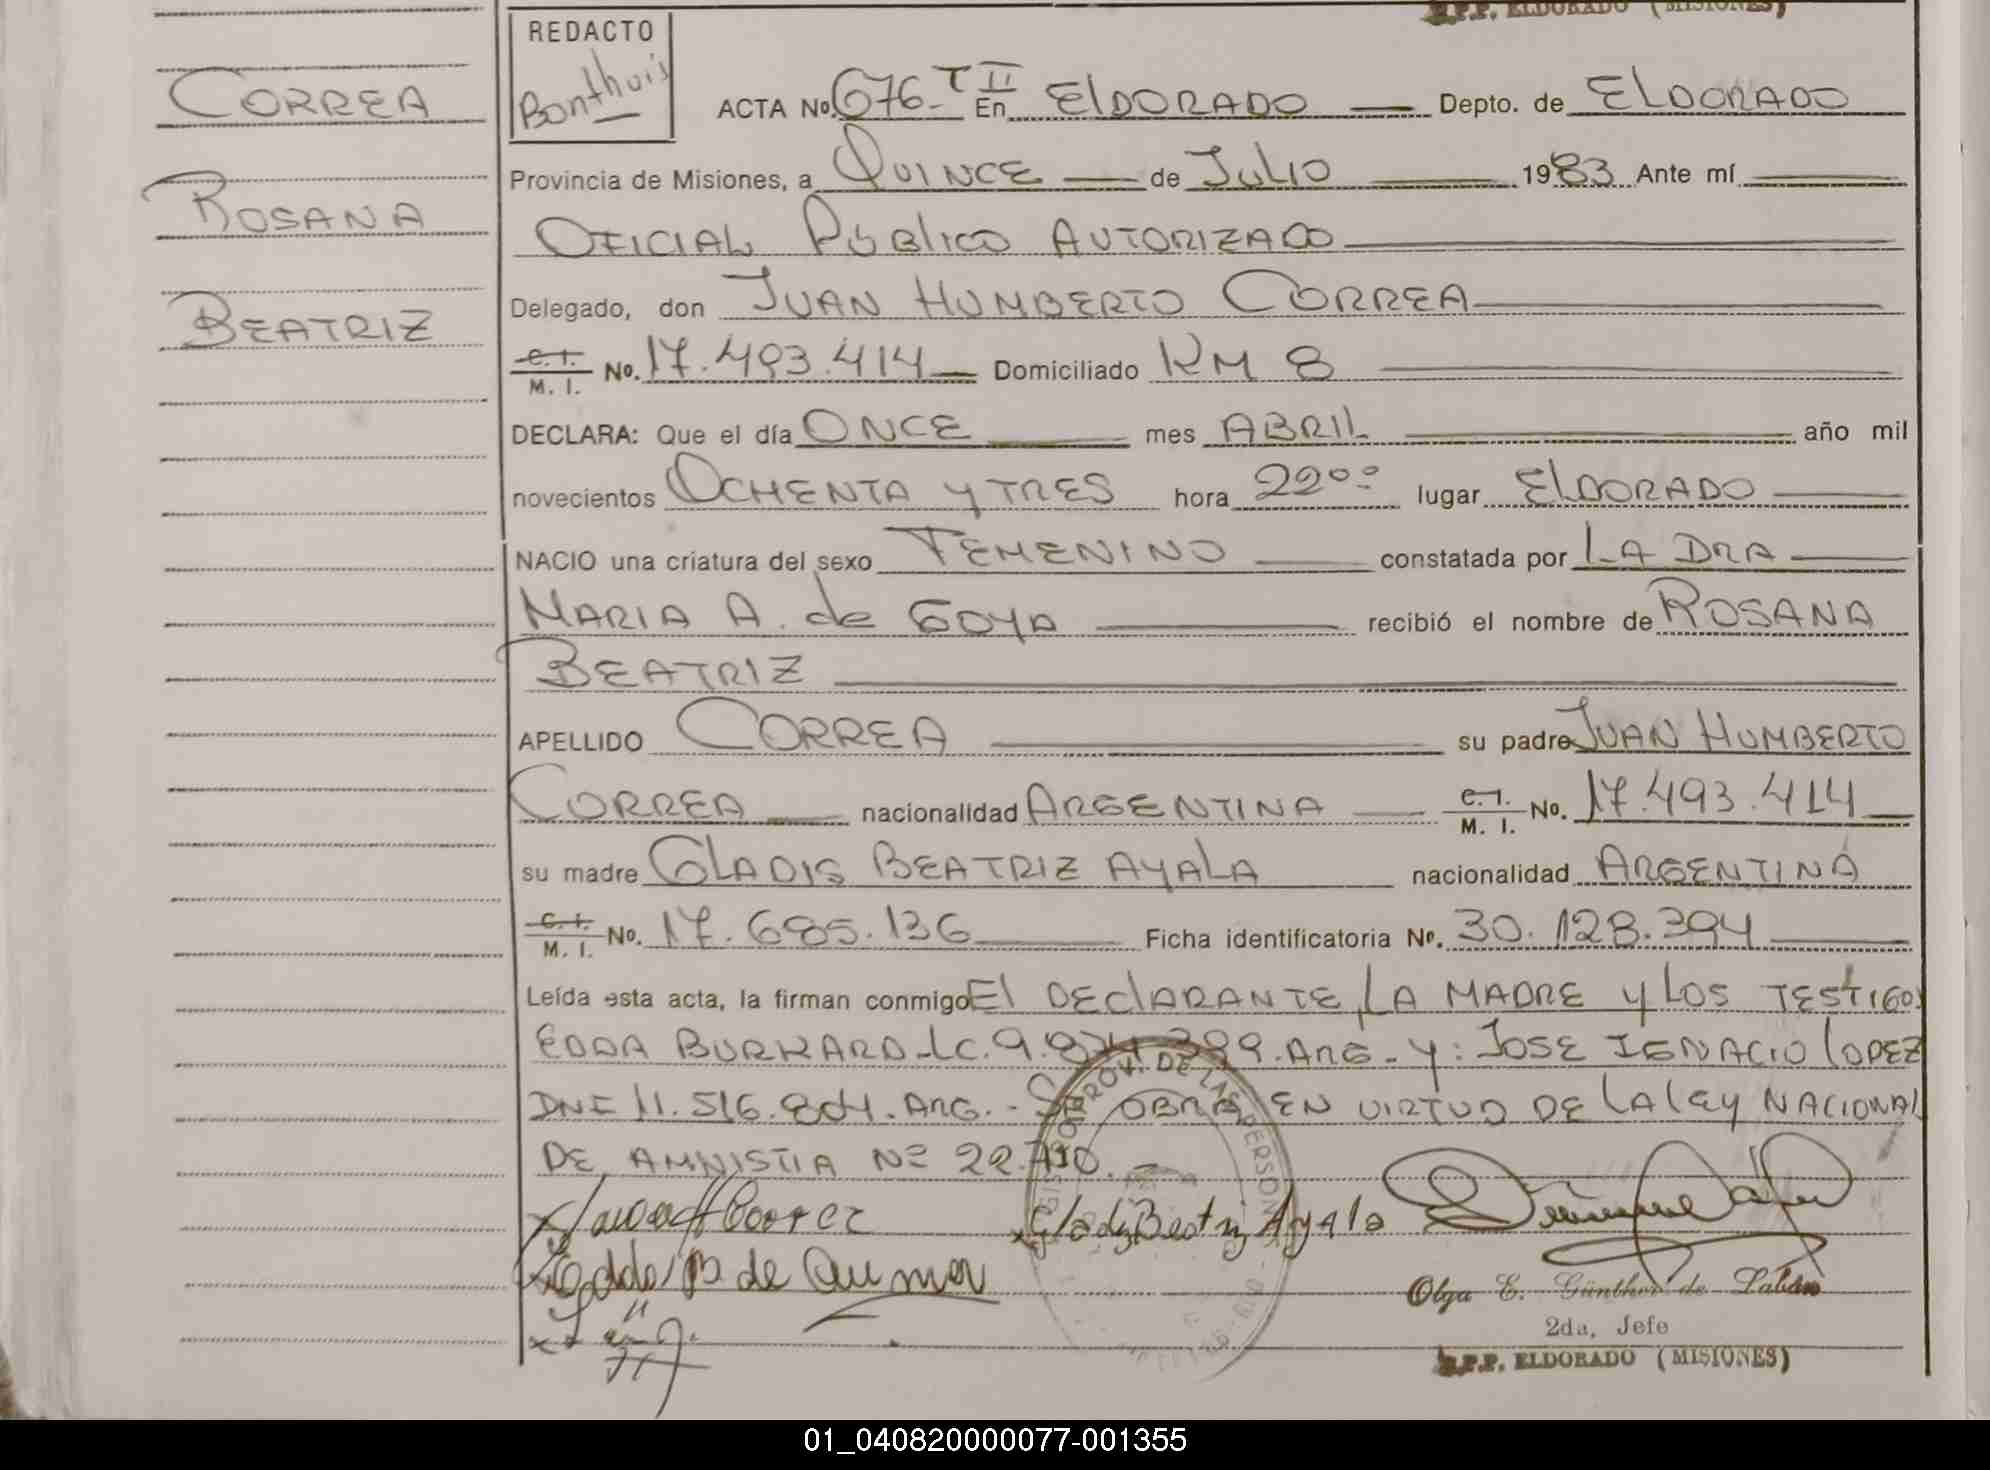 R.P.P. ELDORADO (MISIONES)
REDACTO
Bonthuis
CORREA
ROSANA
BEATRIZ
ACTA No. 676-T II En ElDORADO Depto. de ElDORADO
Provincia de Misiones, a QUINCE de JULIO 1983 Ante mí
OFICIAL PÚBLICO AUTORIZADO
Delegado, don JUAN HUMBERTO CORREA
C. I. M. I. No. 17.493.414 Domiciliado KM 8
DECLARA: Que el día ONCE mes ABRIL año mil
novecientos OCHENTA y TRES hora 22°° lugar ElDORADO
NACIO una criatura del sexo FEMENINO constatada por LA DRA
MARIA A. de GOYA recibió el nombre de ROSANA
BEATRIZ
APELLIDO CORREA su padre JUAN HUMBERTO
CORREA nacionalidad ARGENTINA C. I. M. I. No. 17.493.414
su madre GLADIS BEATRIZ AYALA nacionalidad ARGENTINA
C. I. M. I. No. 17.685.136 Ficha identificatoria No. 30.128.394
Leída esta acta, la firman conmigo El DEClARANTE, LA MADRE y LOS TESTIGOS
EDDA BURKARD-LC. 9. ARG - y: JOSE IGNACIO LOPEZ
DNI 11.516.804. ARG. - SE OBRA EN VIRTUD DE LA LEY NACIONAL
DE AMNISTIA Nº
Gladyz Beatriz Ayala
Edda B de
Olga E. Günther de
2da. Jefe
R.P.P. ELDORADO (MISIONES)
01_040820000077-001355